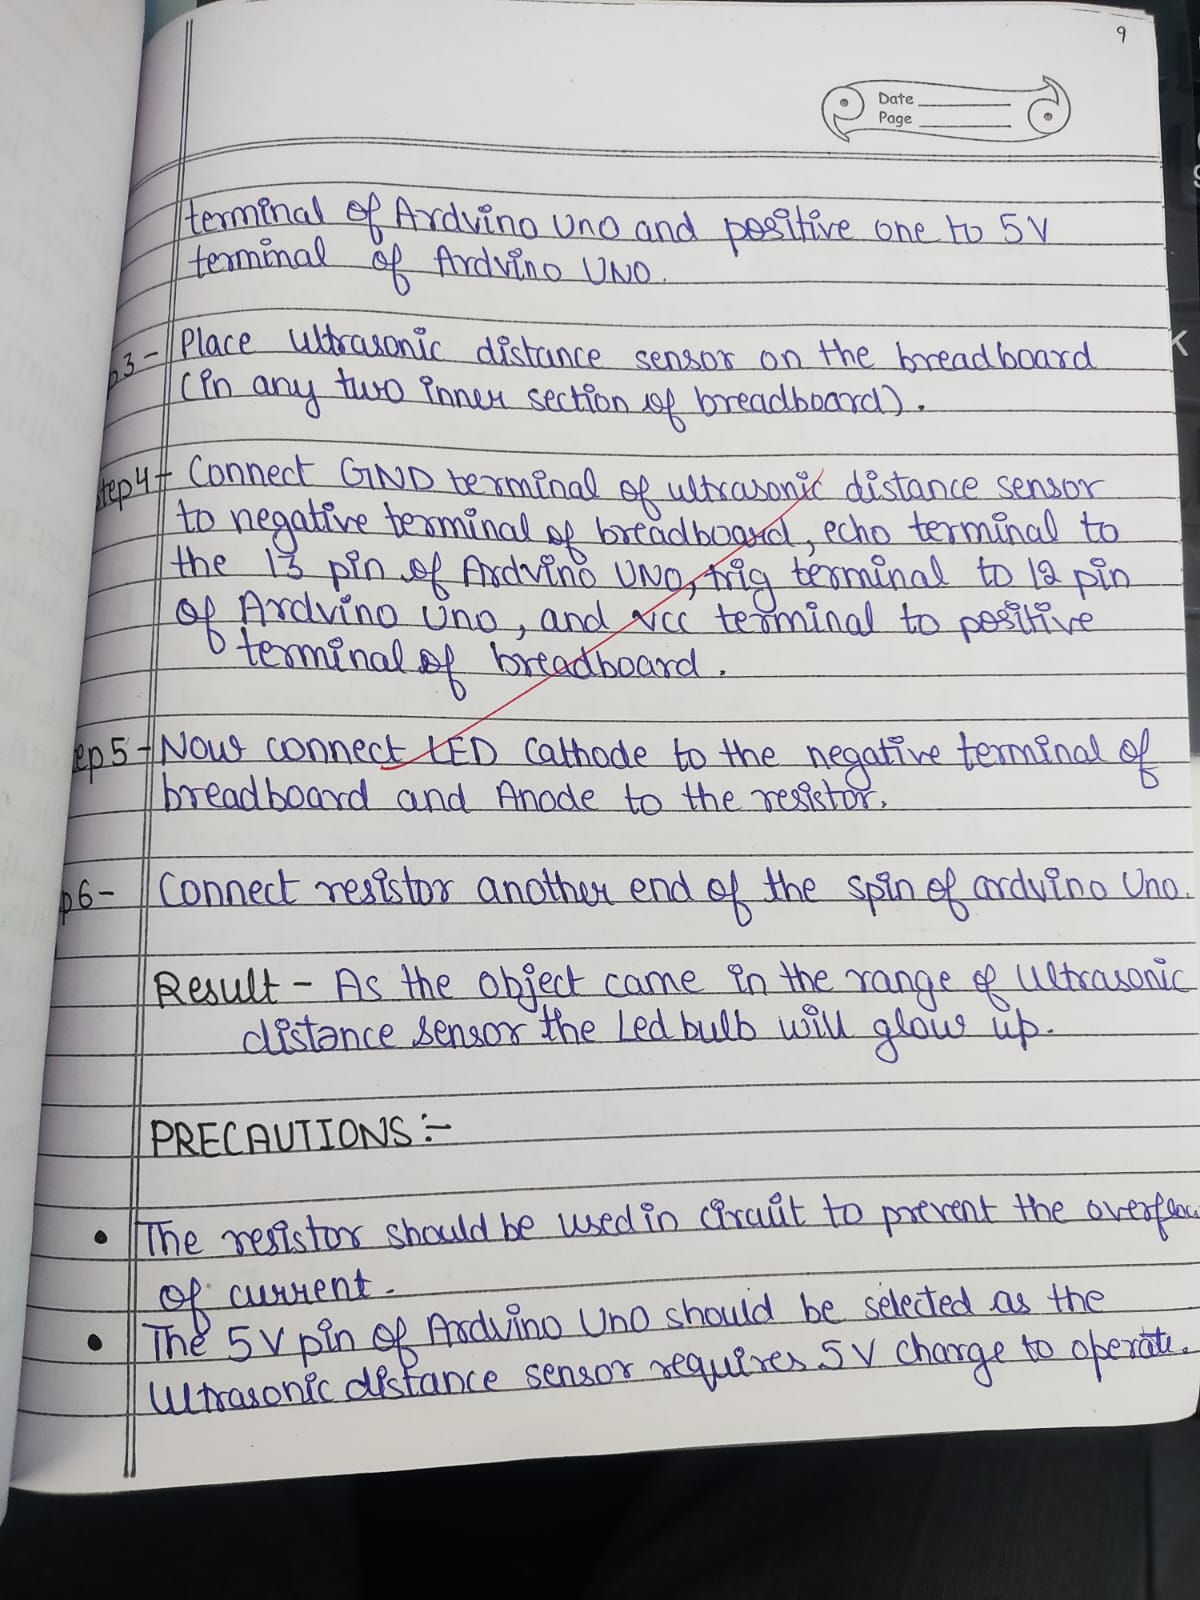 9
Date
Page
terminal of Arduino Uno and positive one to 5V
terminal of Arduino UNO.
p3- Place ultrasonic distance sensor on the breadboard
(in any two inner section of breadboard).
tep4- Connect GND terminal of ultrasonic distance sensor
to negative terminal of breadboard, echo terminal to
the 13 pin of Arduino UNO, trig terminal to 12 pin
of Arduino Uno, and vcc terminal to positive
terminal of breadboard.
ep5- Now connect LED Cathode to the negative terminal of
breadboard and Anode to the resistor.
p6- Connect resistor another end of the 5pin of arduino Uno.
Result - As the object came in the range of Ultrasonic
distance sensor the Led bulb will glow up.
PRECAUTIONS :-
• The resistor should be used in circuit to prevent the overflow
of current.
• The 5V pin of Arduino Uno should be selected as the
Ultrasonic distance sensor requires 5V charge to operate.